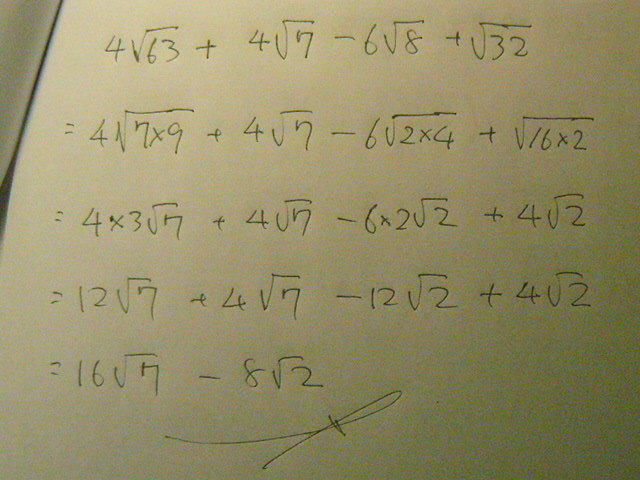 4√63 + 4√7 − 6√8 + √32
= 4√7×9 + 4√7 − 6√2×4 + √16×2
= 4×3√7 + 4√7 − 6×2√2 + 4√2
= 12√7 + 4√7 − 12√2 + 4√2
= 16√7 − 8√2